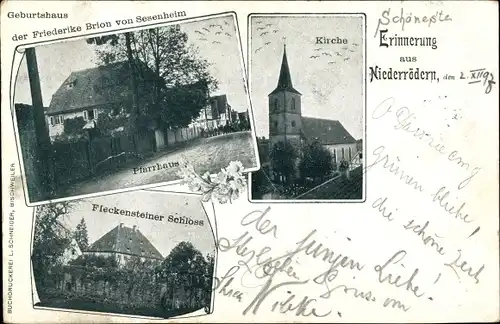 Geburtshaus
der Friederike Brion von Sesenheim
Pfarrhaus
Kirche
Schönste
Erinnerung
aus
Niederrödern, den 2. XII 97
O
grünen bliebe!
die schöne Zeit
der jungen Liebe!
Gruss von
Fleckensteiner Schloss
BUCHDRUCKEREI L. SCHNEIDER, BISCHWEILER